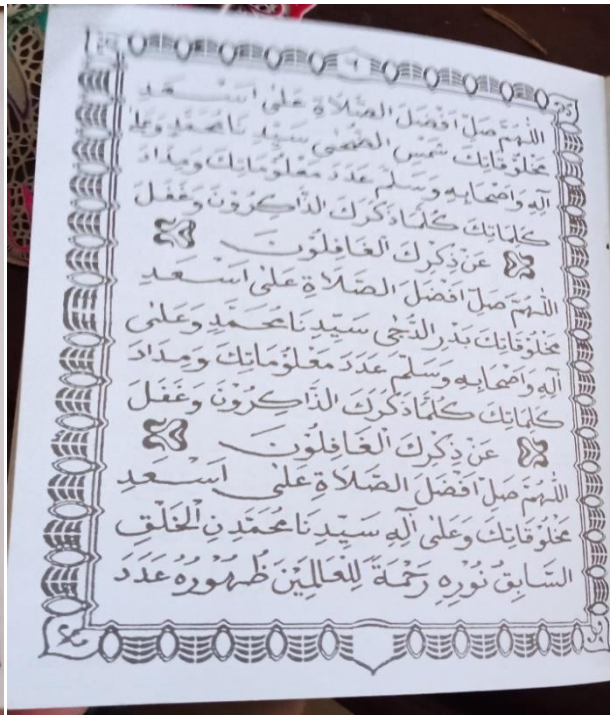 ٢
اللّٰهُمَّ صَلِّ اَفْضَلَ الصَّلَاةِ عَلٰى اَسْعَدِ
مَخْلُوْقَاتِكَ شَمْسِ الضُّحٰى سَيِّدِنَا مُحَمَّدٍ وَعَلٰى
آلِهِ وَاَصْحَابِهِ وَسَلِّمْ عَدَدَ مَعْلُوْمَاتِكَ وَمِدَادَ
كَلِمَاتِكَ كُلَّمَا ذَكَرَكَ الذَّاكِرُوْنَ وَغَفَلَ
عَنْ ذِكْرِكَ الْغَافِلُوْنَ
اللّٰهُمَّ صَلِّ اَفْضَلَ الصَّلَاةِ عَلٰى اَسْعَدِ
مَخْلُوْقَاتِكَ بَدْرِ الدُّجٰى سَيِّدِنَا مُحَمَّدٍ وَعَلٰى
آلِهِ وَاَصْحَابِهِ وَسَلِّمْ عَدَدَ مَعْلُوْمَاتِكَ وَمِدَادَ
كَلِمَاتِكَ كُلَّمَا ذَكَرَكَ الذَّاكِرُوْنَ وَغَفَلَ
عَنْ ذِكْرِكَ الْغَافِلُوْنَ
اللّٰهُمَّ صَلِّ اَفْضَلَ الصَّلَاةِ عَلٰى اَسْعَدِ
مَخْلُوْقَاتِكَ وَعَلٰى آلِهِ سَيِّدِنَا مُحَمَّدِنِ الْخَلْقِ
السَّابِقُ نُوْرُهُ رَحْمَةً لِلْعَالَمِيْنَ ظُهُوْرُهُ عَدَدَ